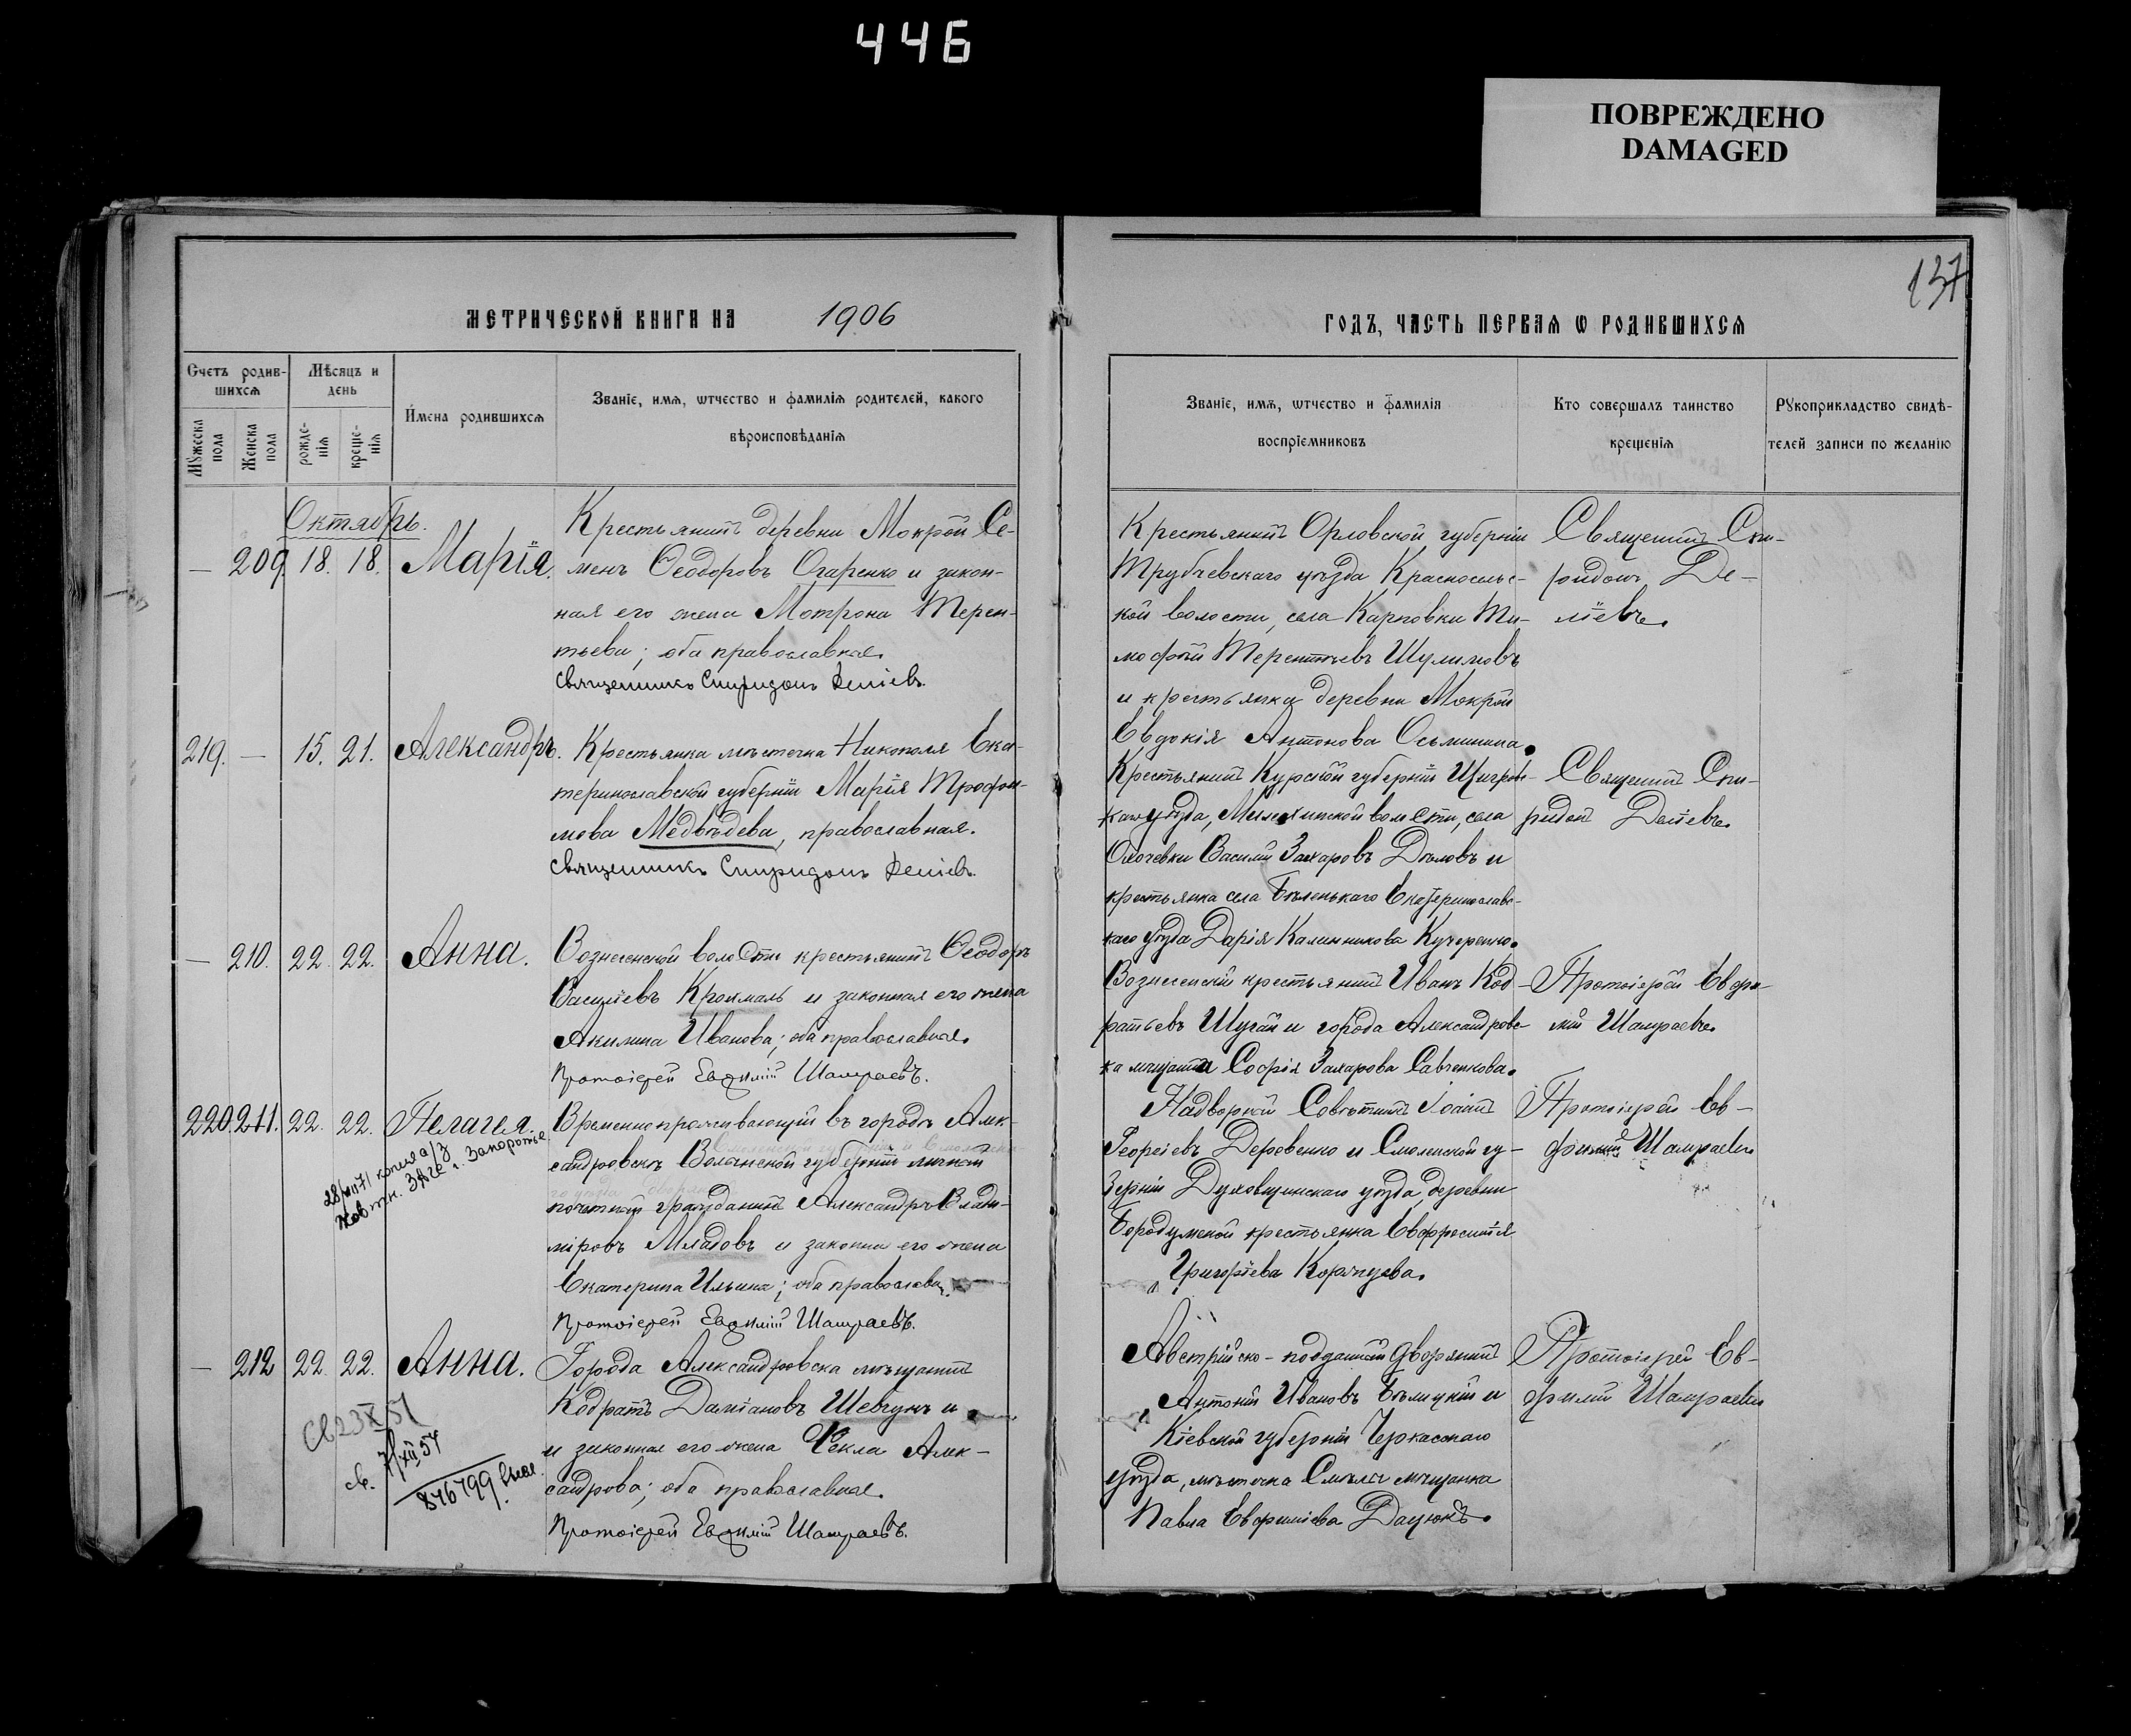 446
ПОВРЕЖДЕНО
DAMAGED
137
МЕТРИЧЕСКОЙ КНИГИ НА 1906
ГОДЪ, ЧАСТЬ ПЕРВАЯ Ѡ РОДИВШИХСЯ
Счетъ родив-
шихсѧ
Мѣсяцъ и
день
Мужеска
пола
Женска
пола
рожде-
нія
креще-
нія
Имена родившихсѧ
Званіе, имѧ, ѡтчество и фамиліѧ родителей, какого
вѣроисповѣданіѧ
Званіе, имѧ, ѡтчество и фамилія
воспріемниковъ
Кто совершалъ таинство
крещенія
Рукоприкладство свидѣ-
телей записи по желанію
Октябрь.
— 209. 18. 18. Марія.
Крестьянинъ деревни Мокрой Се-
менъ Ѳеодоровъ Огаренко и закон-
ная его жена Мотрона Терен-
тьева; оба православные.
Священникъ Спиридонъ Деліевъ.
Крестьянинъ Орловской губерніи
Трубчевскаго уѣзда Красносельс-
кой волости, села Карповки Ти-
мофей Терентьевъ Шулимовъ
и крестьянка деревни Мокрой
Евдокія Антонова Осьминина.
Священникъ Спи-
ридонъ Де-
ліевъ.
219. — 15. 21. Александръ.
Крестьянка мѣстечка Никополя Ека-
теринославской губерніи Марія Трофи-
мова Медвѣдева, православная.
Священникъ Спиридонъ Деліевъ.
Крестьянинъ Курской губерніи Щигров-
каго уѣзда, волости, села
Охочевки Василій Захаровъ Дѣловъ и
крестьянка села Бѣленькаго Екатеринославс-
каго уѣзда Дарія Калинникова Кучеренко.
Священникъ Спи-
ридонъ Деліевъ.
— 210. 22. 22. Анна.
Вознесенской волости крестьянинъ Ѳеодоръ
Василіевъ Крохмаль и законная его жена
Акилина Иванова; оба православные.
Протоіерей Евѳимій Шамраевъ.
Вознесенскій крестьянинъ Иванъ Код-
ратьевъ Шугай и города Александровс-
ка мѣщанка Софія Захарова Савченкова.
Протоіерей Евфи-
мій Шамраевъ.
220. 211. 22. 22. Пелагея.
28/VII 71 копия а/з
Жовтн. ЗАГС г. Запорожье
Временнопроживающій въ городѣ Алек-
сандровскѣ Волынской губерніи личный
почетный гражданинъ Александръ Влади-
міровъ Младовъ и законная его жена
Екатерина Ильина; оба православн.
Протоіерей Евѳимій Шамраевъ.
Надворный Совѣтникъ Іоаннъ
Георгіевъ Деровенко и Смоленской гу-
берніи Духовщинскаго уѣзда, деревни
крестьянка Евфросинія
Григоріева
Протоіерей Ев-
фимій Шамраевъ
— 212 22. 22. Анна.
св 23 X 51
св. 7/XII 54
876799
Города Александровска мѣщанинъ
Кодратъ Даміановъ Шевчунъ и
и законная его жена Ѳекла Алек-
сандрова; оба православные.
Протоіерей Евѳимій Шамраевъ.
Австрійско-подданный дворянинъ
Антоній Ивановъ Бѣлицкій и
Кіевской губерніи Черкасскаго
уѣзда, мѣстечка Смѣлы мѣщанка
Павла Евфиміева Дацюкъ.
Протоіерей Ев-
фимій Шамраевъ